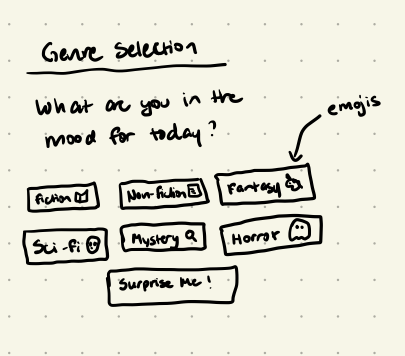 Genre Selection
What are you in the
mood for today?
emojis
Fiction Non-fiction Fantasy
Sci-fi Mystery Horror
Surprise Me!